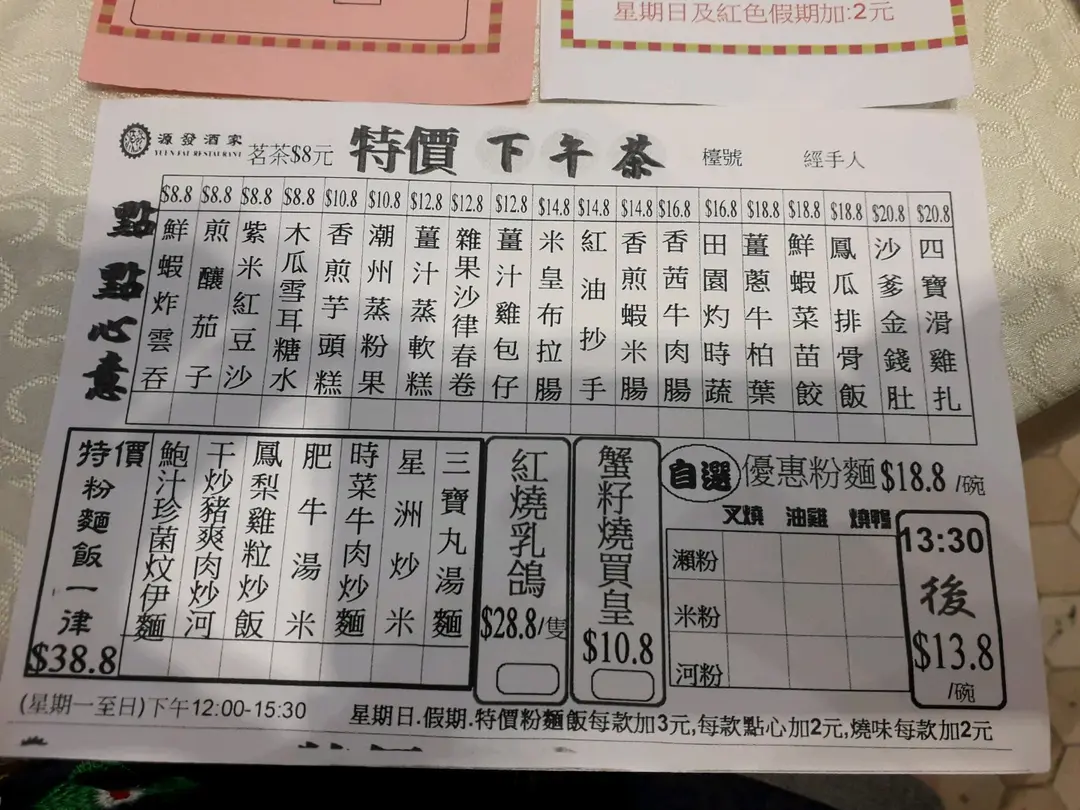 星期日及紅色假期加:2元
源發酒家
YUEN FAT RESTAURANT
茗茶$8元
特價下午茶
檯號
經手人
點點心意
$8.8 鮮蝦炸雲吞
$8.8 煎釀茄子
$8.8 紫米紅豆沙
$8.8 木瓜雪耳糖水
$10.8 香煎芋頭糕
$10.8 潮州蒸粉果
$12.8 薑汁蒸軟糕
$12.8 雜果沙律春卷
$12.8 薑汁雞包仔
$14.8 米皇布拉腸
$14.8 紅油抄手
$14.8 香煎蝦米腸
$16.8 香茜牛肉腸
$16.8 田園灼時蔬
$18.8 薑蔥牛柏葉
$18.8 鮮蝦菜苗餃
$18.8 鳳瓜排骨飯
$20.8 沙爹金錢肚
$20.8 四寶滑雞扎
特價粉麵飯一律
$38.8
鮑汁珍菌炆伊麵
干炒豬爽肉炒河
鳳梨雞粒炒飯
肥牛湯米
時菜牛肉炒麵
星洲炒米
三寶丸湯麵
紅燒乳鴿
$28.8/隻
蟹籽燒買皇
$10.8
自選 優惠粉麵 $18.8 /碗
叉燒 油雞 燒鴨
瀨粉
米粉
河粉
13:30
後
$13.8
/碗
(星期一至日)下午12:00-15:30
星期日.假期.特價粉麵飯每款加3元,每款點心加2元,燒味每款加2元